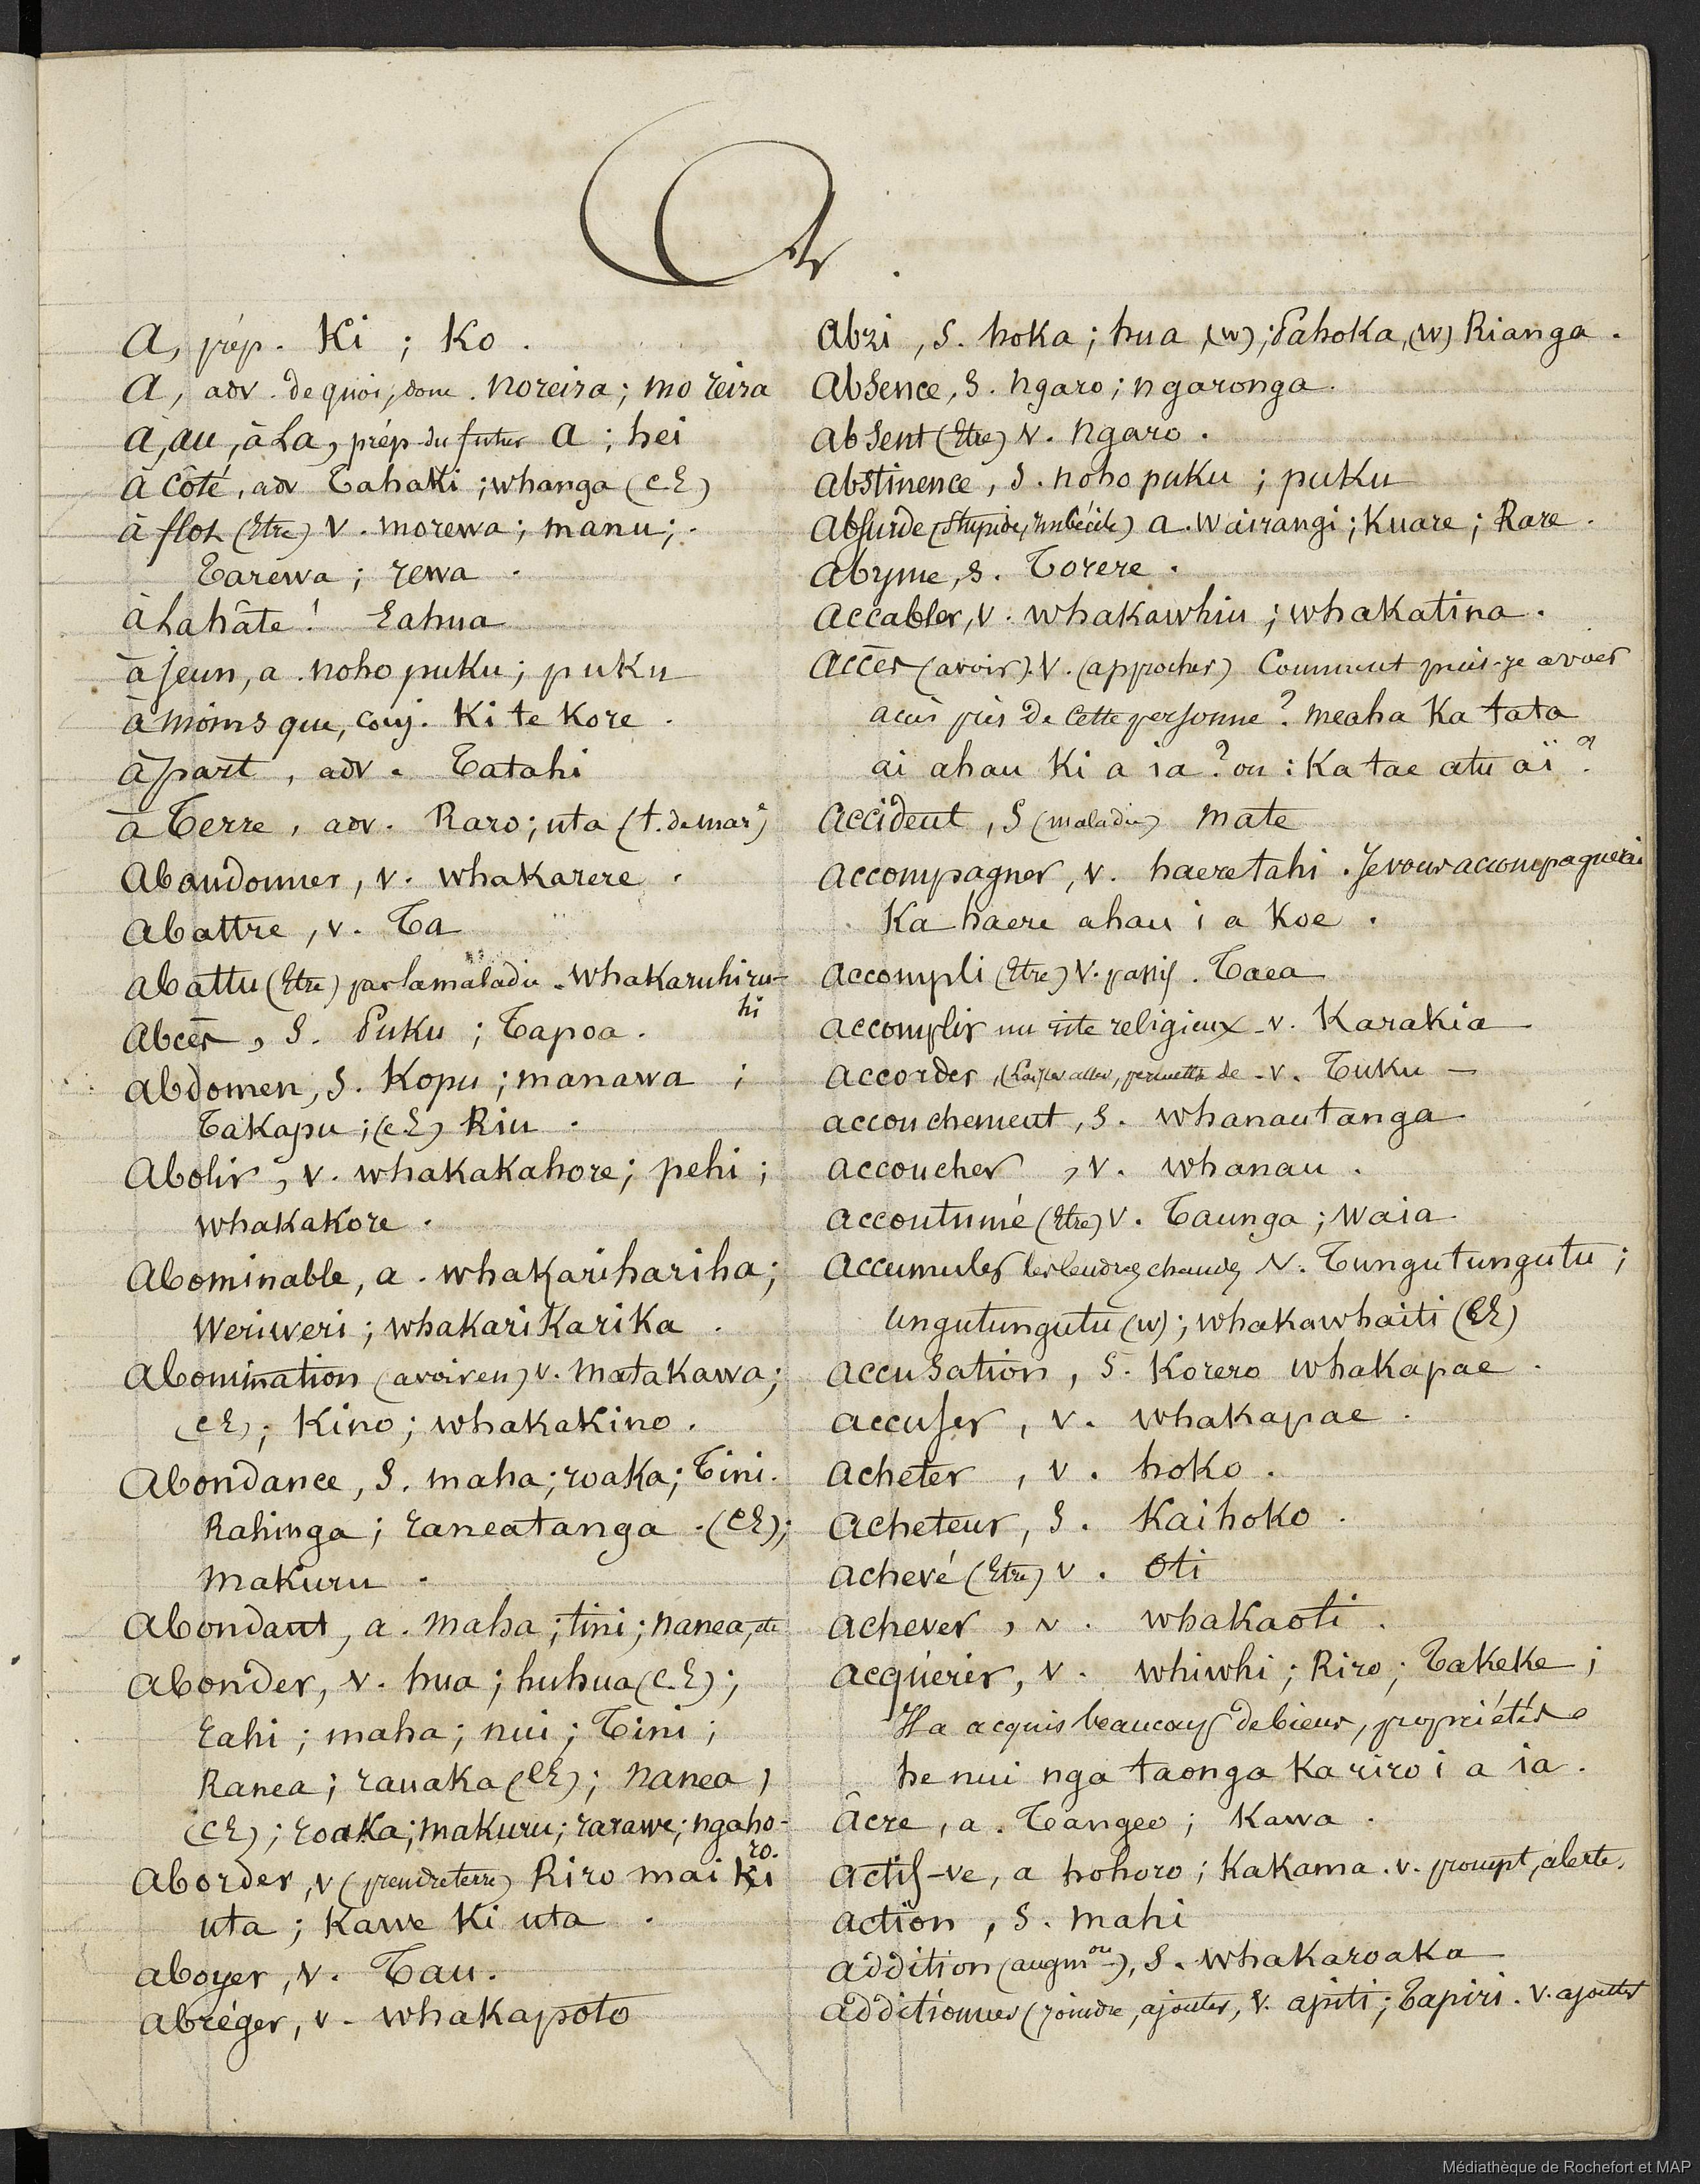 A.
A, prép. Ki ; Ko .
A, adv. de quoi, donc . Noreira ; mo reira
à, au, à la, prép. du futur A ; hei
à côté, adv Tahaki ; whanga (CE)
à flot (Etre) v. morewa ; manu ; .
Tarewa ; rewa .
à la hâte ! Eahua
à jeun, a . noho puku ; puku
à moins que, conj. Ki te Kore .
à part , adv . Tatahi
à Terre , adv. Raro ; uta (t. de mar.)
Abandonner, v. whakarere .
Abattre , v. Ta
abattu (Etre) par la maladie . whakaruhiru-
hi
Abcès , S. Puku ; Tapoa .
abdomen, S. Kopu ; manawa ;
Takapu ; (CE) Riu .
Abolir , v. whakakahore ; pehi ;
whakakore .
Abominable, a . whakarihariha ;
Weriweri ; whakarikarika .
Abomination (avoir en) v. matakawa ;
(CE) ; Kino ; whakakino .
Abondance, S. maha ; roaka ; Tini .
Rahinga ; raneatanga . (CE) ;
Makuru .
Abondant, a . maha ; tini ; nanea, etc
abonder, v. hua ; huhua (CE) ;
Eahi ; maha ; nui ; Tini ;
Ranea ; rauaka (CE) ; nanea ,
(CE) ; roaka ; makuru ; rarawe ; ngaho-
ro.
aborder , v (prendre terre) Riro mai ki
uta ; Kawe Ki uta .
aboyer, v. Tau.
abréger, v. whakapoto
Abri , S. hoka ; hua , (W) ; Pahoka, (W) Rianga .
Absence, S. ngaro ; ngaronga .
absent (Etre) v. ngaro .
abstinence, S. noho puku ; puku
Absurde (Stupide, imbécile) a . Wairangi ; Kuare ; Rare .
abyme, S. Torere .
Accabler, v. whakawhiu ; whakatina .
Accès (avoir). v. (approcher) Comment puis-je avoir
accès près de cette personne ? meaha Ka tata
ai ahau Ki a ia ? ou : Ka tae atu aï ?
Accident , S (maladie) mate
accompagner, v. haere tahi . Je vous accompagnerai
Ka haere ahau i a Koe .
Accompli (Etre) v. passif . Taea
accomplir un rite religieux . v. Karakia .
accorder , (Laisser aller, permettre de . v. Tuku –
accouchement, S. whanautanga
accoucher , v. whanau .
accoutumé (Etre) v. Taunga ; waia
Accumuler les cendres chaudes v. Tungutungutu ;
ungutungutu (W) ; whakawhaiti (CE)
accusation, S. Korero whakapae .
accuser , v. whakapae .
acheter , v. hoko .
acheteur, S. Kaihoko .
achevé (Etre) v . oti
achever , v. whakaoti .
acquérir, v. whiwhi ; Riro ; Takeke ;
Il a acquis beaucoup de biens, propriétés
he nui nga taonga Ka riro i a ia .
âcre, a . Tangeo ; Kawa .
actif-ve, a hohoro ; Kakama . v. prompt, alerte.
action , S. mahi
addition (augmon), S. whakaroaka
additionner (joindre, ajouter, v. apiti ; Tapiri . v. ajouter
Médiathèque de Rochefort et MAP